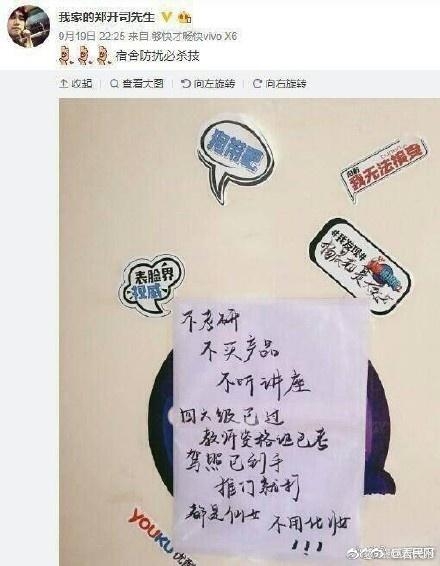 我家的郑开司先生
9月19日 22:25 来自 够快才畅快vivo X6
宿舍防扰必杀技
收起 查看大图 向左旋转 向右旋转
表脸界
权威
我无法接受
不考研
不买产品
不听讲座
四六级已过
教师资格证已考
驾照已到手
推门就打
都是仙女 不用化妆
!!!
YOUKU优酷